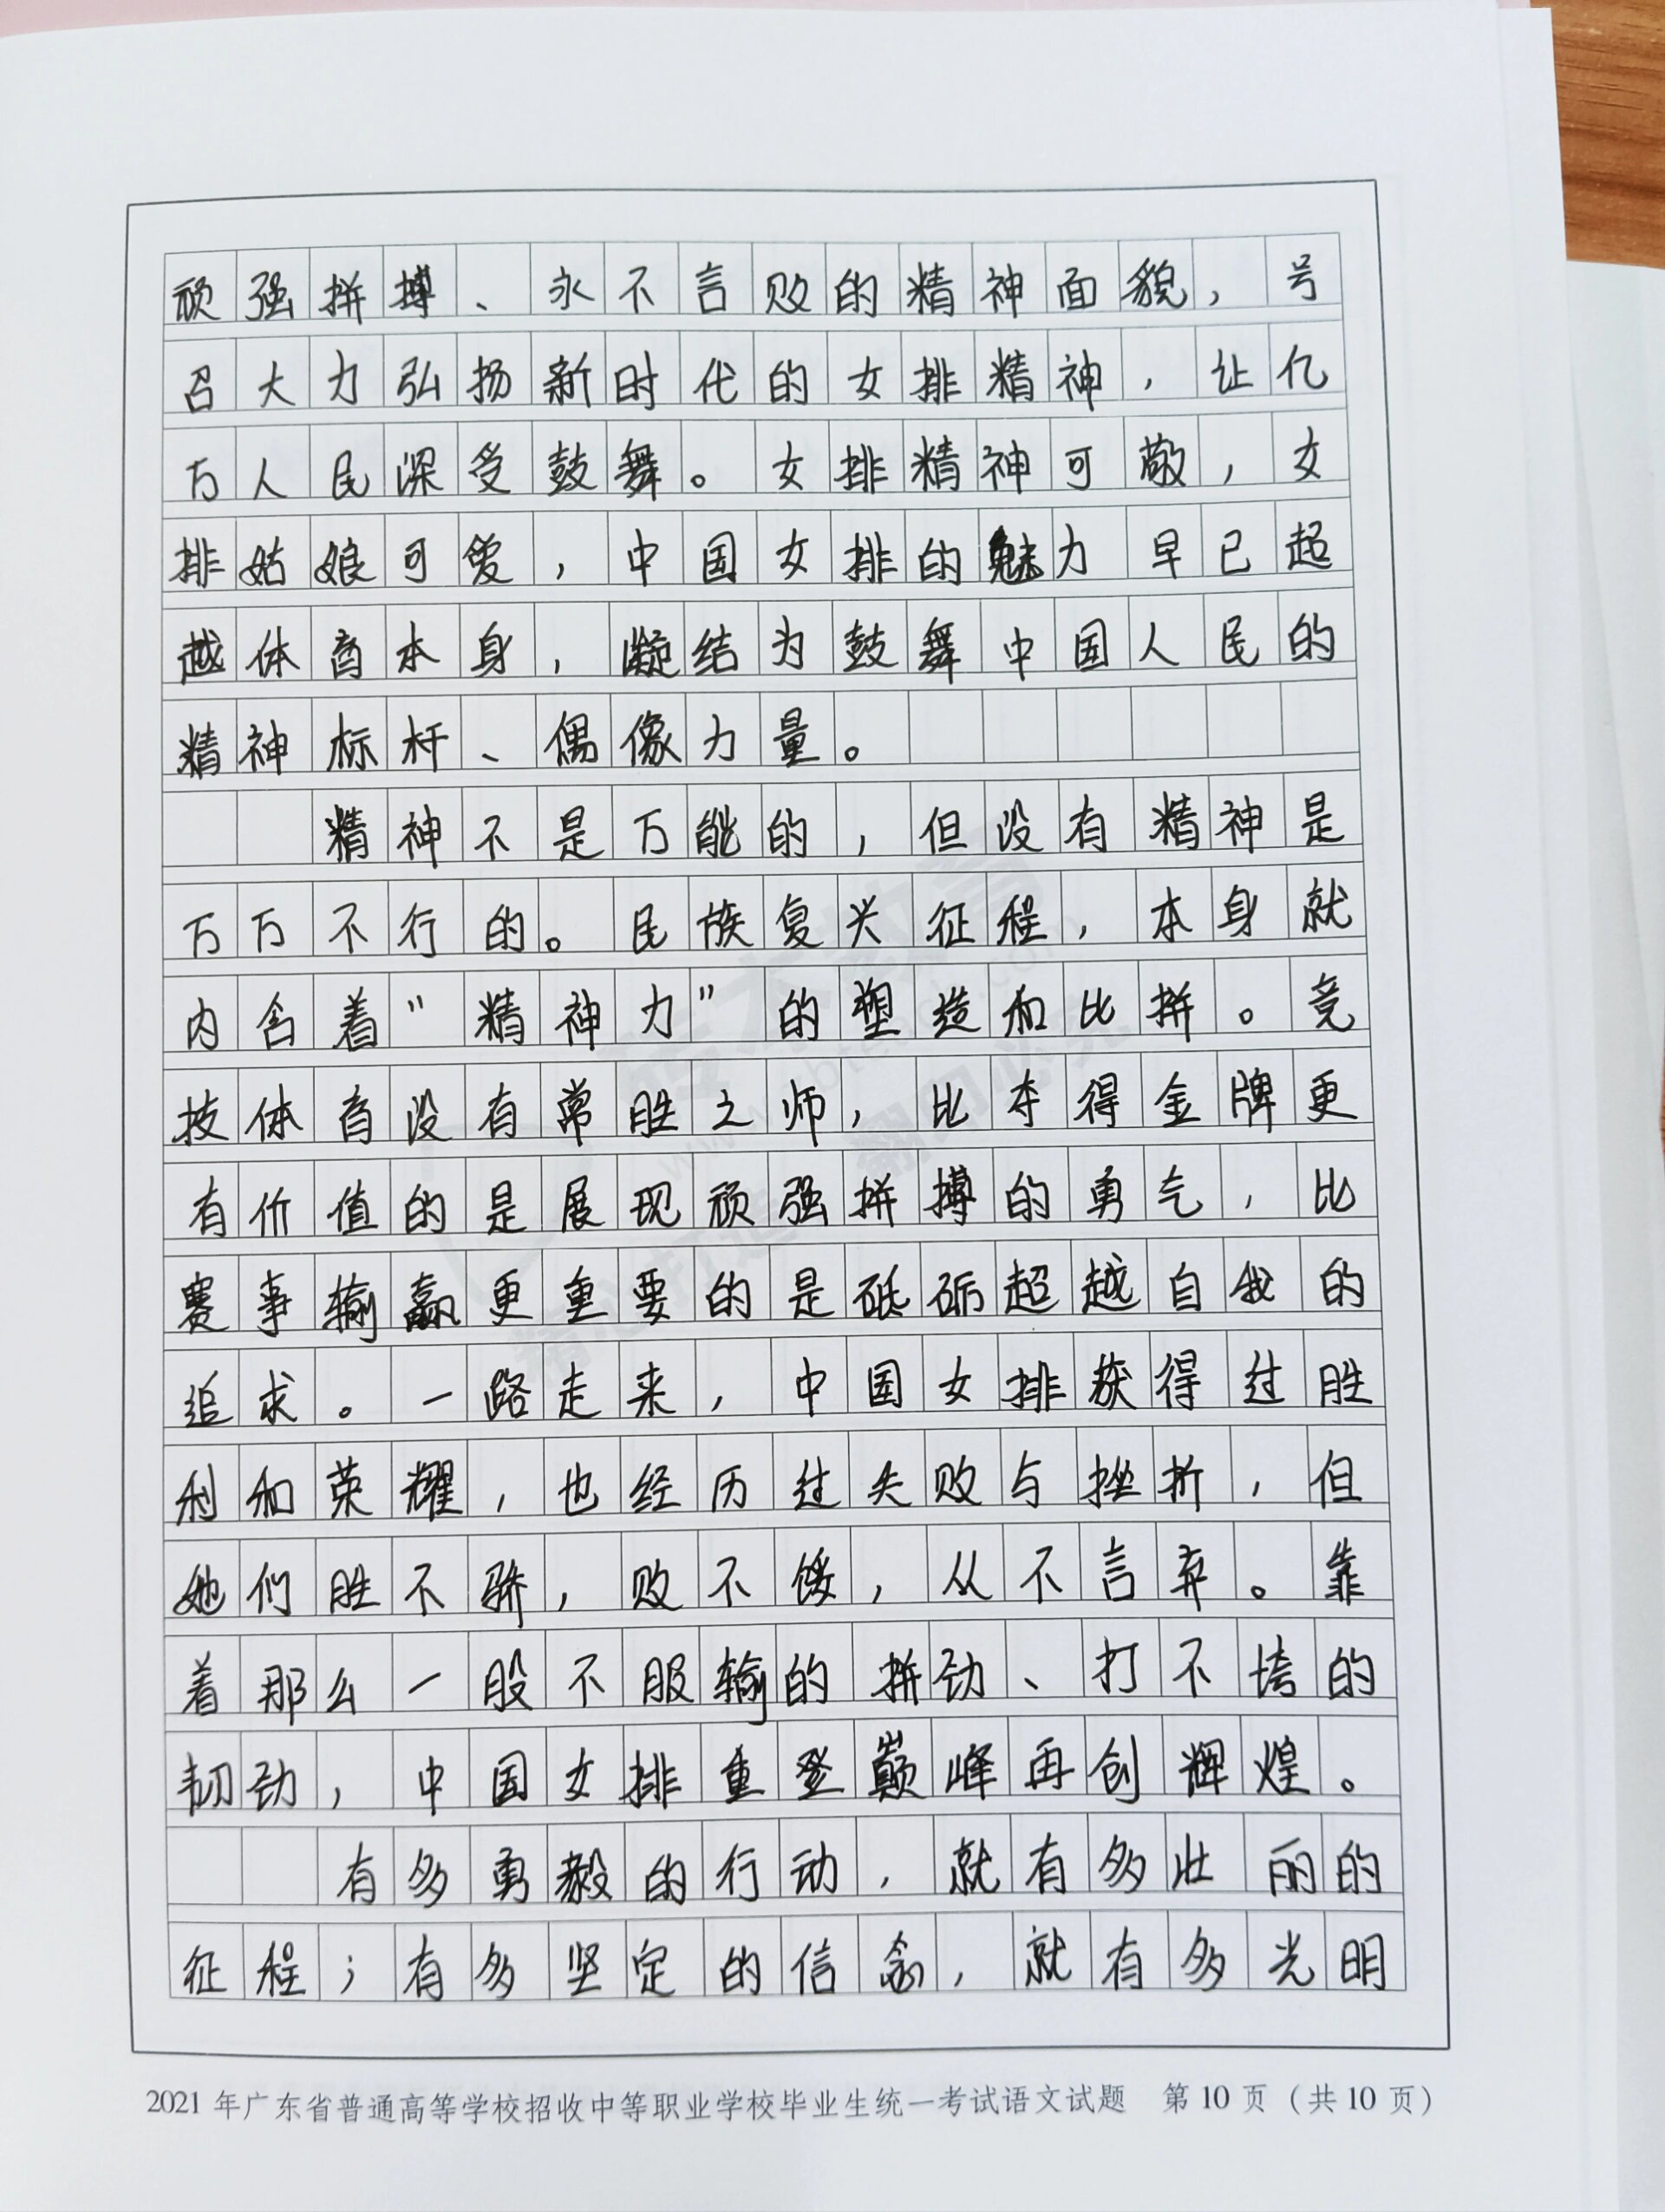 顽强拼搏、永不言败的精神面貌，号
召大力弘扬新时代的女排精神，让亿
万人民深受鼓舞。女排精神可敬，女
排姑娘可爱，中国女排的魅力早已超
越体育本身，凝结为鼓舞中国人民的
精神标杆、偶像力量。
精神不是万能的，但没有精神是
万万不行的。民族复兴征程，本身就
内含着“精神力”的塑造和比拼。竞
技体育没有常胜之师，比夺得金牌更
有价值的是展现顽强拼搏的勇气，比
赛事输赢更重要的是砥砺超越自我的
追求。一路走来，中国女排获得过胜
利和荣耀，也经历过失败与挫折，但
她们胜不骄，败不馁，从不言弃。靠
着那么一股不服输的拼劲、打不垮的
韧劲，中国女排重登巅峰再创辉煌。
有多勇毅的行动，就有多壮丽的
征程；有多坚定的信念，就有多光明
2021年广东省普通高等学校招收中等职业学校毕业生统一考试语文试题 第10页（共10页）